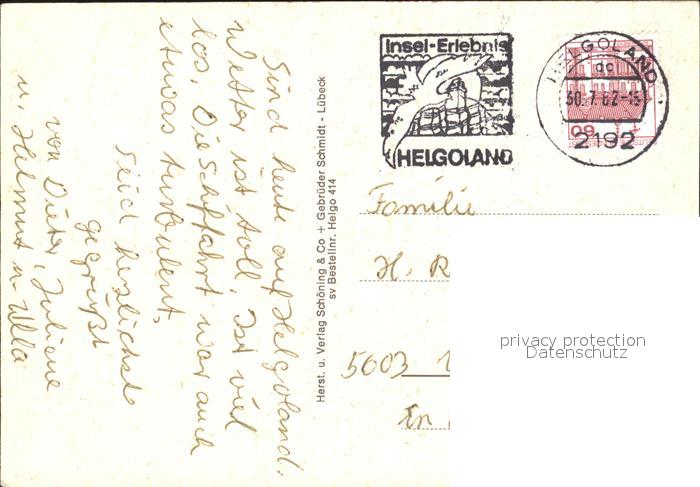 Sind heute auf Helgoland.
Wetter ist toll. Ist viel
los. Die Schiffahrt war auch
etwas turbulent,
Seid herzlichst
gegrüßt
von Dieter, Juliane
u. Helmut u Ulla
Herst. u. Verlag Schöning & Co + Gebrüder Schmidt - Lübeck
sv Bestellnr. Helgo 414
Insel-Erlebnis
HELGOLAND
HELGOLAND
dc
30.7.82-15
2192
60
Familie
H. R
5603
privacy protection
Datenschutz